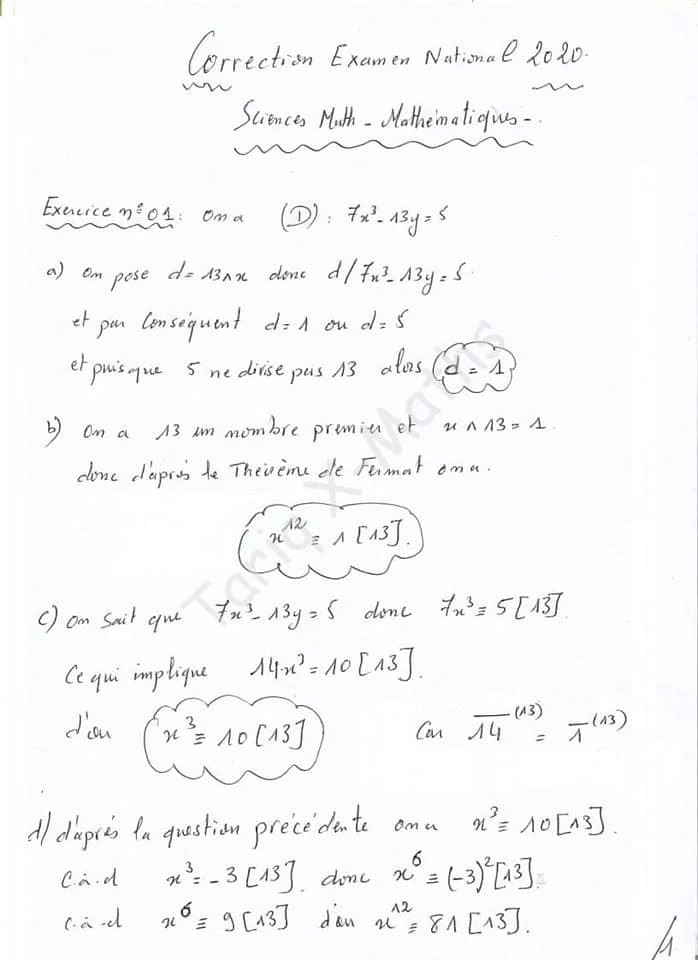 Correction Examen National 2020.
Sciences Math - Mathématiques -.
Exercice n°01: On a (D): 7x³-13y=5
a) On pose d=13∧x donc d/7x³-13y=5.
et par Conséquent d=1 ou d=5
et puisque 5 ne divise pas 13 alors d=1
b) On a 13 un nombre premier et x∧13=1.
donc d'après le Théorème de Fermat on a.
x¹²≡1[13].
c) On sait que 7x³-13y=5 donc 7x³≡5[13].
Ce qui implique 14x³≡10[13].
d'où x³≡10[13] Car 14̅⁽¹³⁾ = 1̅⁽¹³⁾
d) d'après la question précédente on a x³≡10[13].
C.à.d x³≡-3[13]. donc x⁶≡(-3)²[13].
c.à-d x⁶≡9[13] d'où x¹²≡81[13].
1
Tariq X Maths